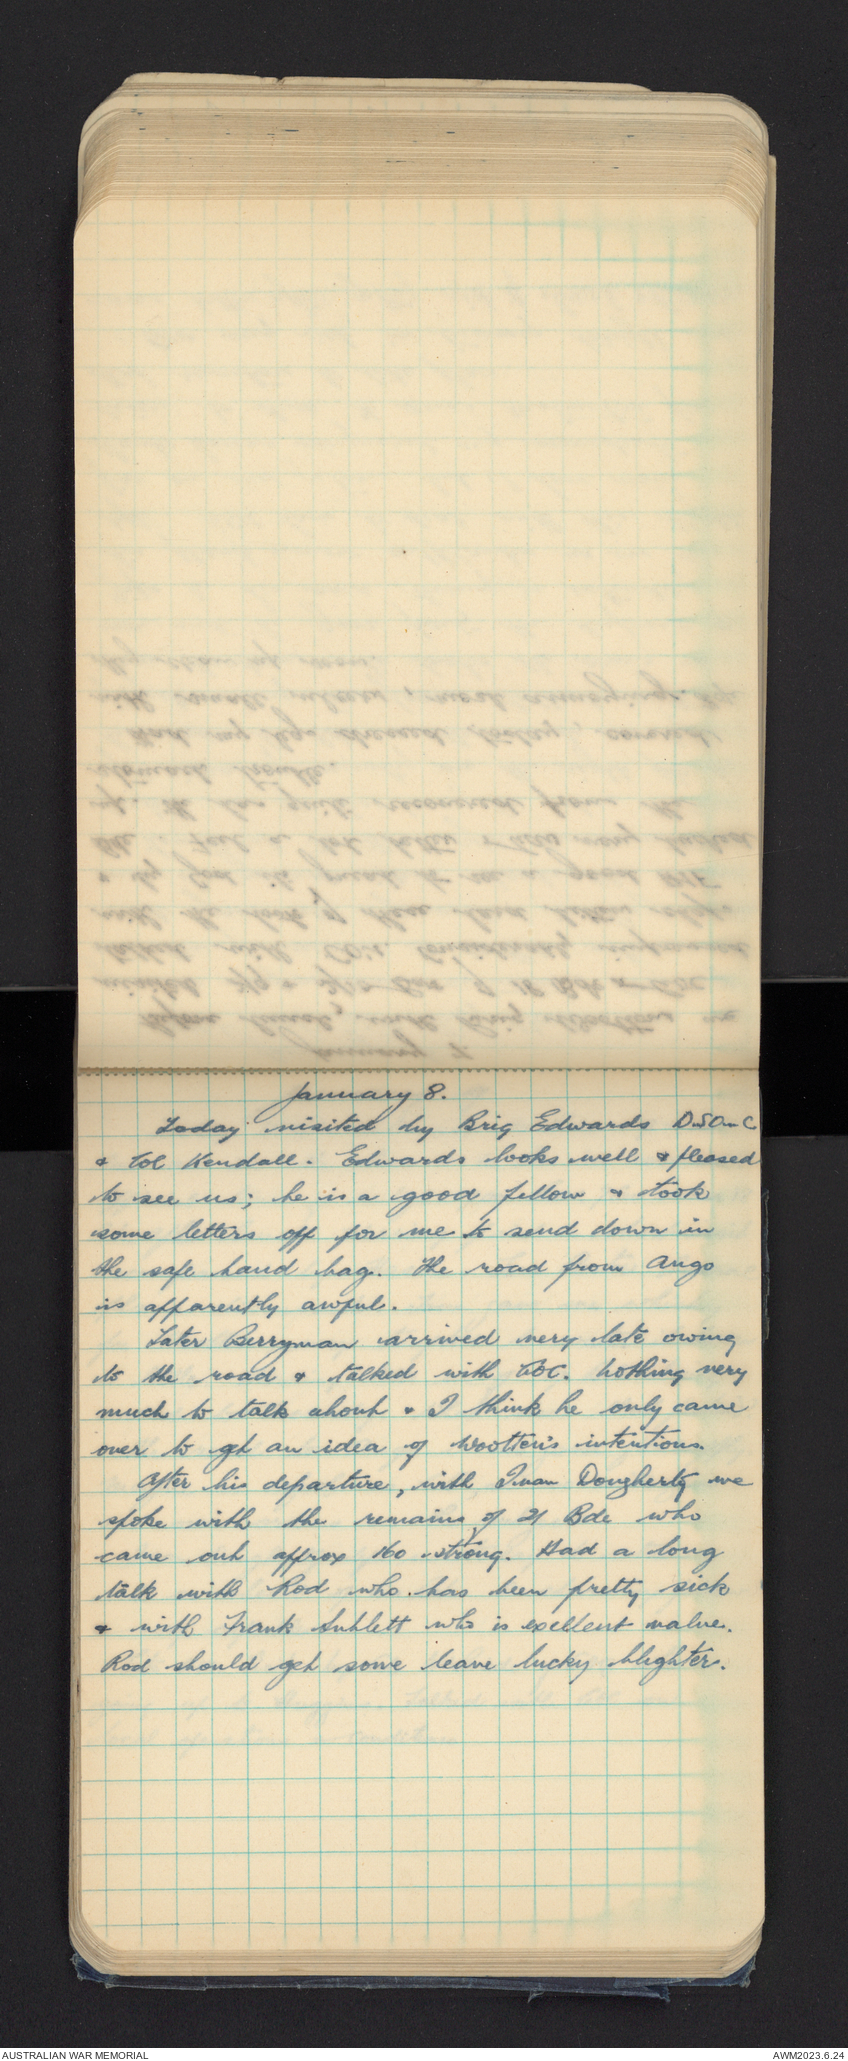 January 8.
Today visited by Brig Edwards
& Col Kendall. Edwards looks well & pleased
to see us; he is a good fellow & took
some letters off for me to send down in
the safe hand bag. The road from Ango
is apparently awful.
Later Berryman arrived very late owing
to the road & talked with GOC. Nothing very
much to talk about & I think he only came
over to get an idea of Wootten's intentions.
After his departure, with Ivan Dougherty we
spoke with the remains of 21 Bde who
came out approx 160 strong. Had a long
talk with Rod who has been pretty sick
& with Frank Sublett who is exellent value.
Rod should get some leave lucky blighter.
AUSTRALIAN WAR MEMORIAL
AWM2023.6.24